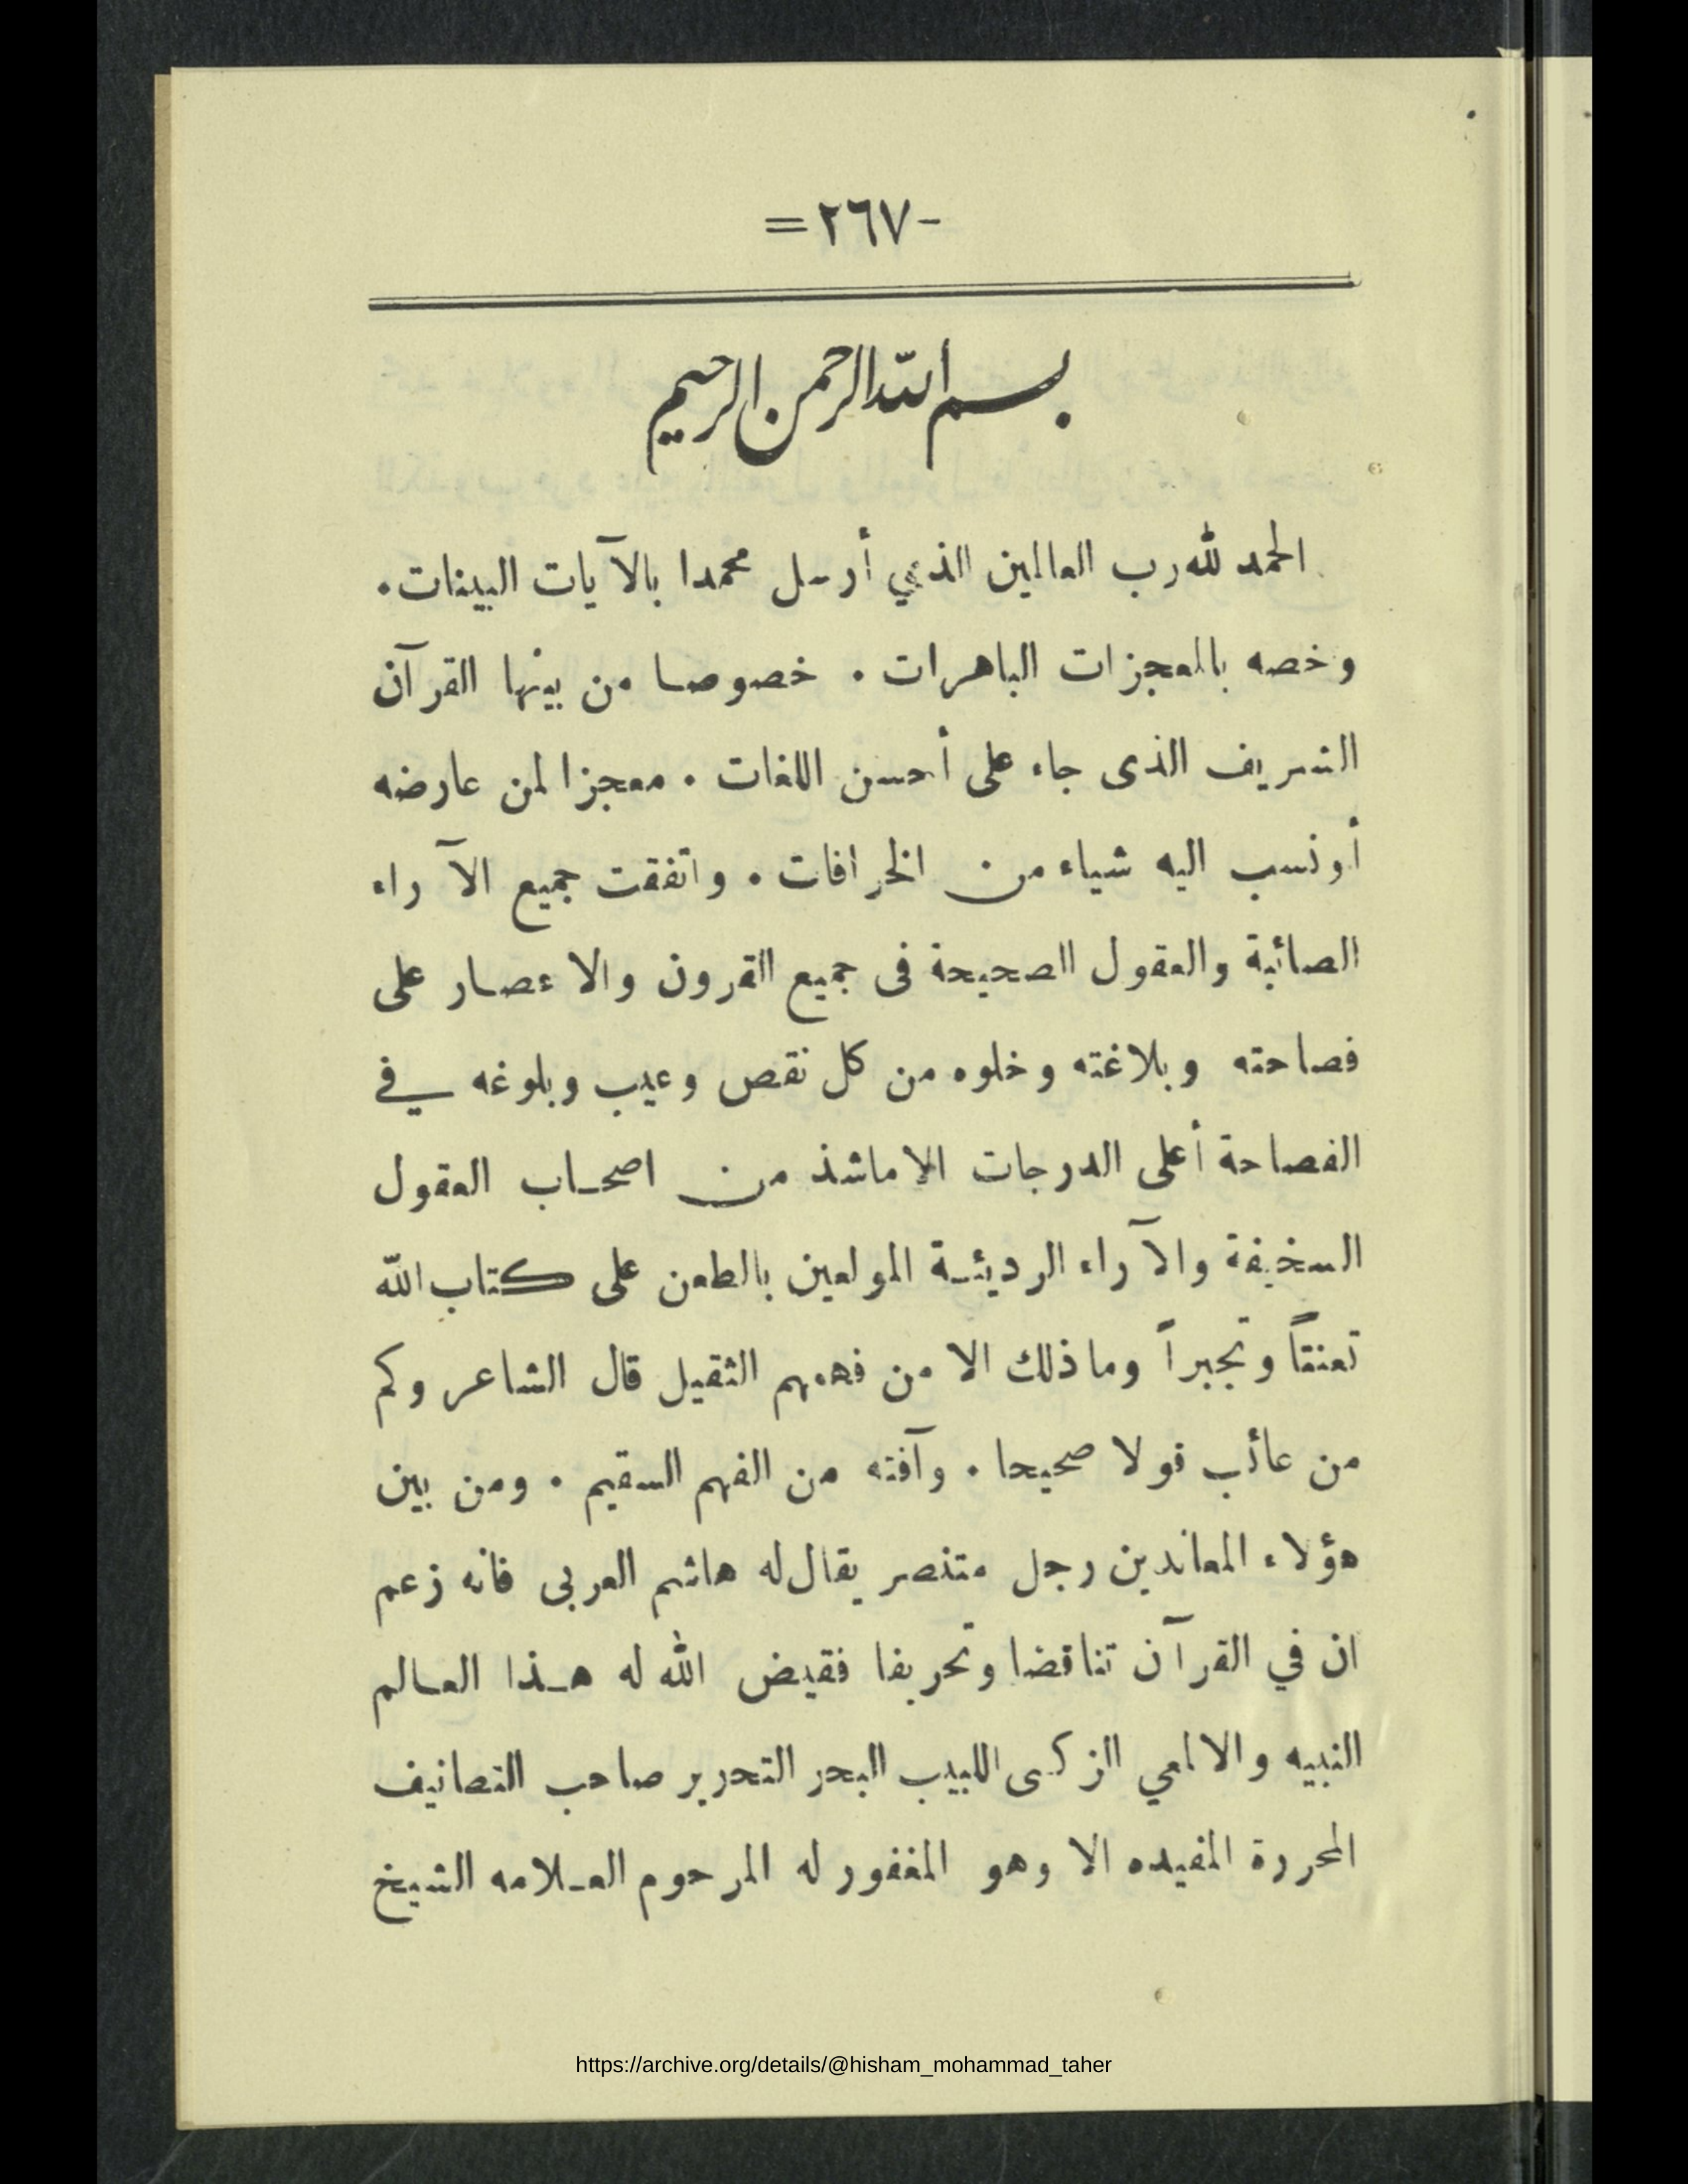 -٢٦٧=
بسم الله الرحمن الرحيم
الحمد لله رب العالمين الذي أرسل محمدا بالآيات البينات.
وخصه بالمعجزات الباهرات . خصوصا من بينها القرآن
الشريف الذى جاء على أحسن اللغات . معجزا لمن عارضه
أو نسب اليه شياء من الخرافات . واتفقت جميع الآراء
الصائبة والعقول الصحيحة فى جميع القرون والاعصار على
فصاحته وبلاغته وخلوه من كل نقص وعيب وبلوغه في
الفصاحة أعلى الدرجات الا ماشذ من اصحاب العقول
السخيفة والآراء الرديئة المولعين بالطعن على كتاب الله
تعنتاً وتجبراً وما ذلك الا من فهمهم الثقيل قال الشاعر وكم
من عائب قولا صحيحا . وآفته من الفهم السقيم . ومن بين
هؤلاء المعاندين رجل متنصر يقال له هاشم العربى فانه زعم
ان في القرآن تناقضا وتحريفا فقيض الله له هذا العالم
النبيه والالمعي الزكى اللبيب البحر التحرير صاحب التصانيف
المحررة المفيده الا وهو المغفور له المرحوم العلامه الشيخ
https://archive.org/details/@hisham_mohammad_taher